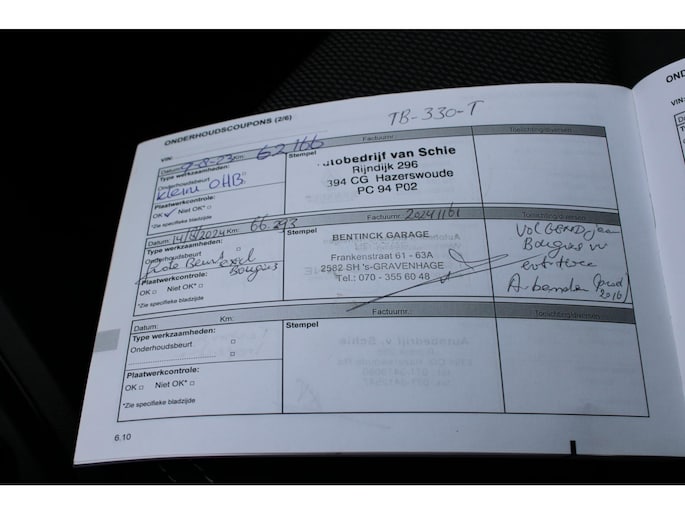 TB-330-T
ONDERHOUDSCOUPONS (2/6)
VIN:
Datum: 7-8-23 Km: 62166
Factuurnr.:
Toelichting/diversen
Type werkzaamheden:
Onderhoudsbeurt
kleine OHB
Plaatwerkcontrole:
OK ✓ Niet OK*
*Zie specifieke bladzijde
Stempel
utobedrijf van Schie
Rijndijk 296
394 CG Hazerswoude
PC 94 P02
Datum: 14/8/2024 Km: 66.293
Factuurnr.: 20241161
Toelichting/diversen
Type werkzaamheden:
Onderhoudsbeurt
Grote Beurt excl
Bougies
Plaatwerkcontrole:
OK Niet OK*
*Zie specifieke bladzijde
Stempel
BENTINCK GARAGE
Frankenstraat 61 - 63A
2582 SH 's-GRAVENHAGE
Tel.: 070 - 355 60 48
VOLGEND Jaar
Bougies
A-banden (prod
2016)
Datum: Km:
Factuurnr.:
Toelichting/diversen
Type werkzaamheden:
Onderhoudsbeurt
Plaatwerkcontrole:
OK Niet OK*
*Zie specifieke bladzijde
Stempel
6.10
OND
VIN: